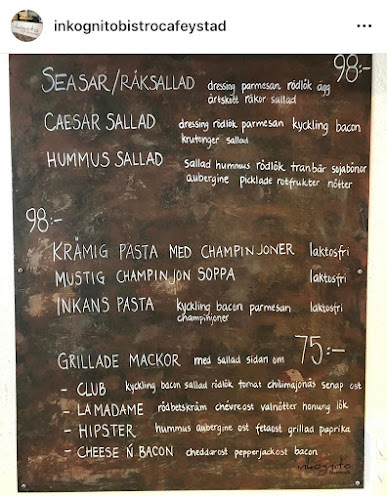 inkognitobistrocafeystad
98:-
SEASAR/RÄKSALLAD dressing parmesan rödlök ägg
ärtskott räkor sallad
CAESAR SALLAD dressing rödlök parmesan kyckling bacon
krutonger sallad
HUMMUS SALLAD sallad hummus rödlök tranbär sojabönor
aubergine picklade rotfrukter nötter
98:-
KRÄMIG PASTA MED CHAMPINJONER laktosfri
MUSTIG CHAMPINJON SOPPA laktosfri
INKANS PASTA kyckling bacon parmesan laktosfri
champinjoner
GRILLADE MACKOR med sallad sidan om 75:-
- CLUB kyckling bacon sallad rödlök tomat chilimajonäs senap ost
- LA MADAME rödbetskräm chévreost valnötter honung lök
- HIPSTER hummus aubergine ost fetaost grillad paprika
- CHEESE Ń BACON cheddarost pepperjackost bacon
inkognito